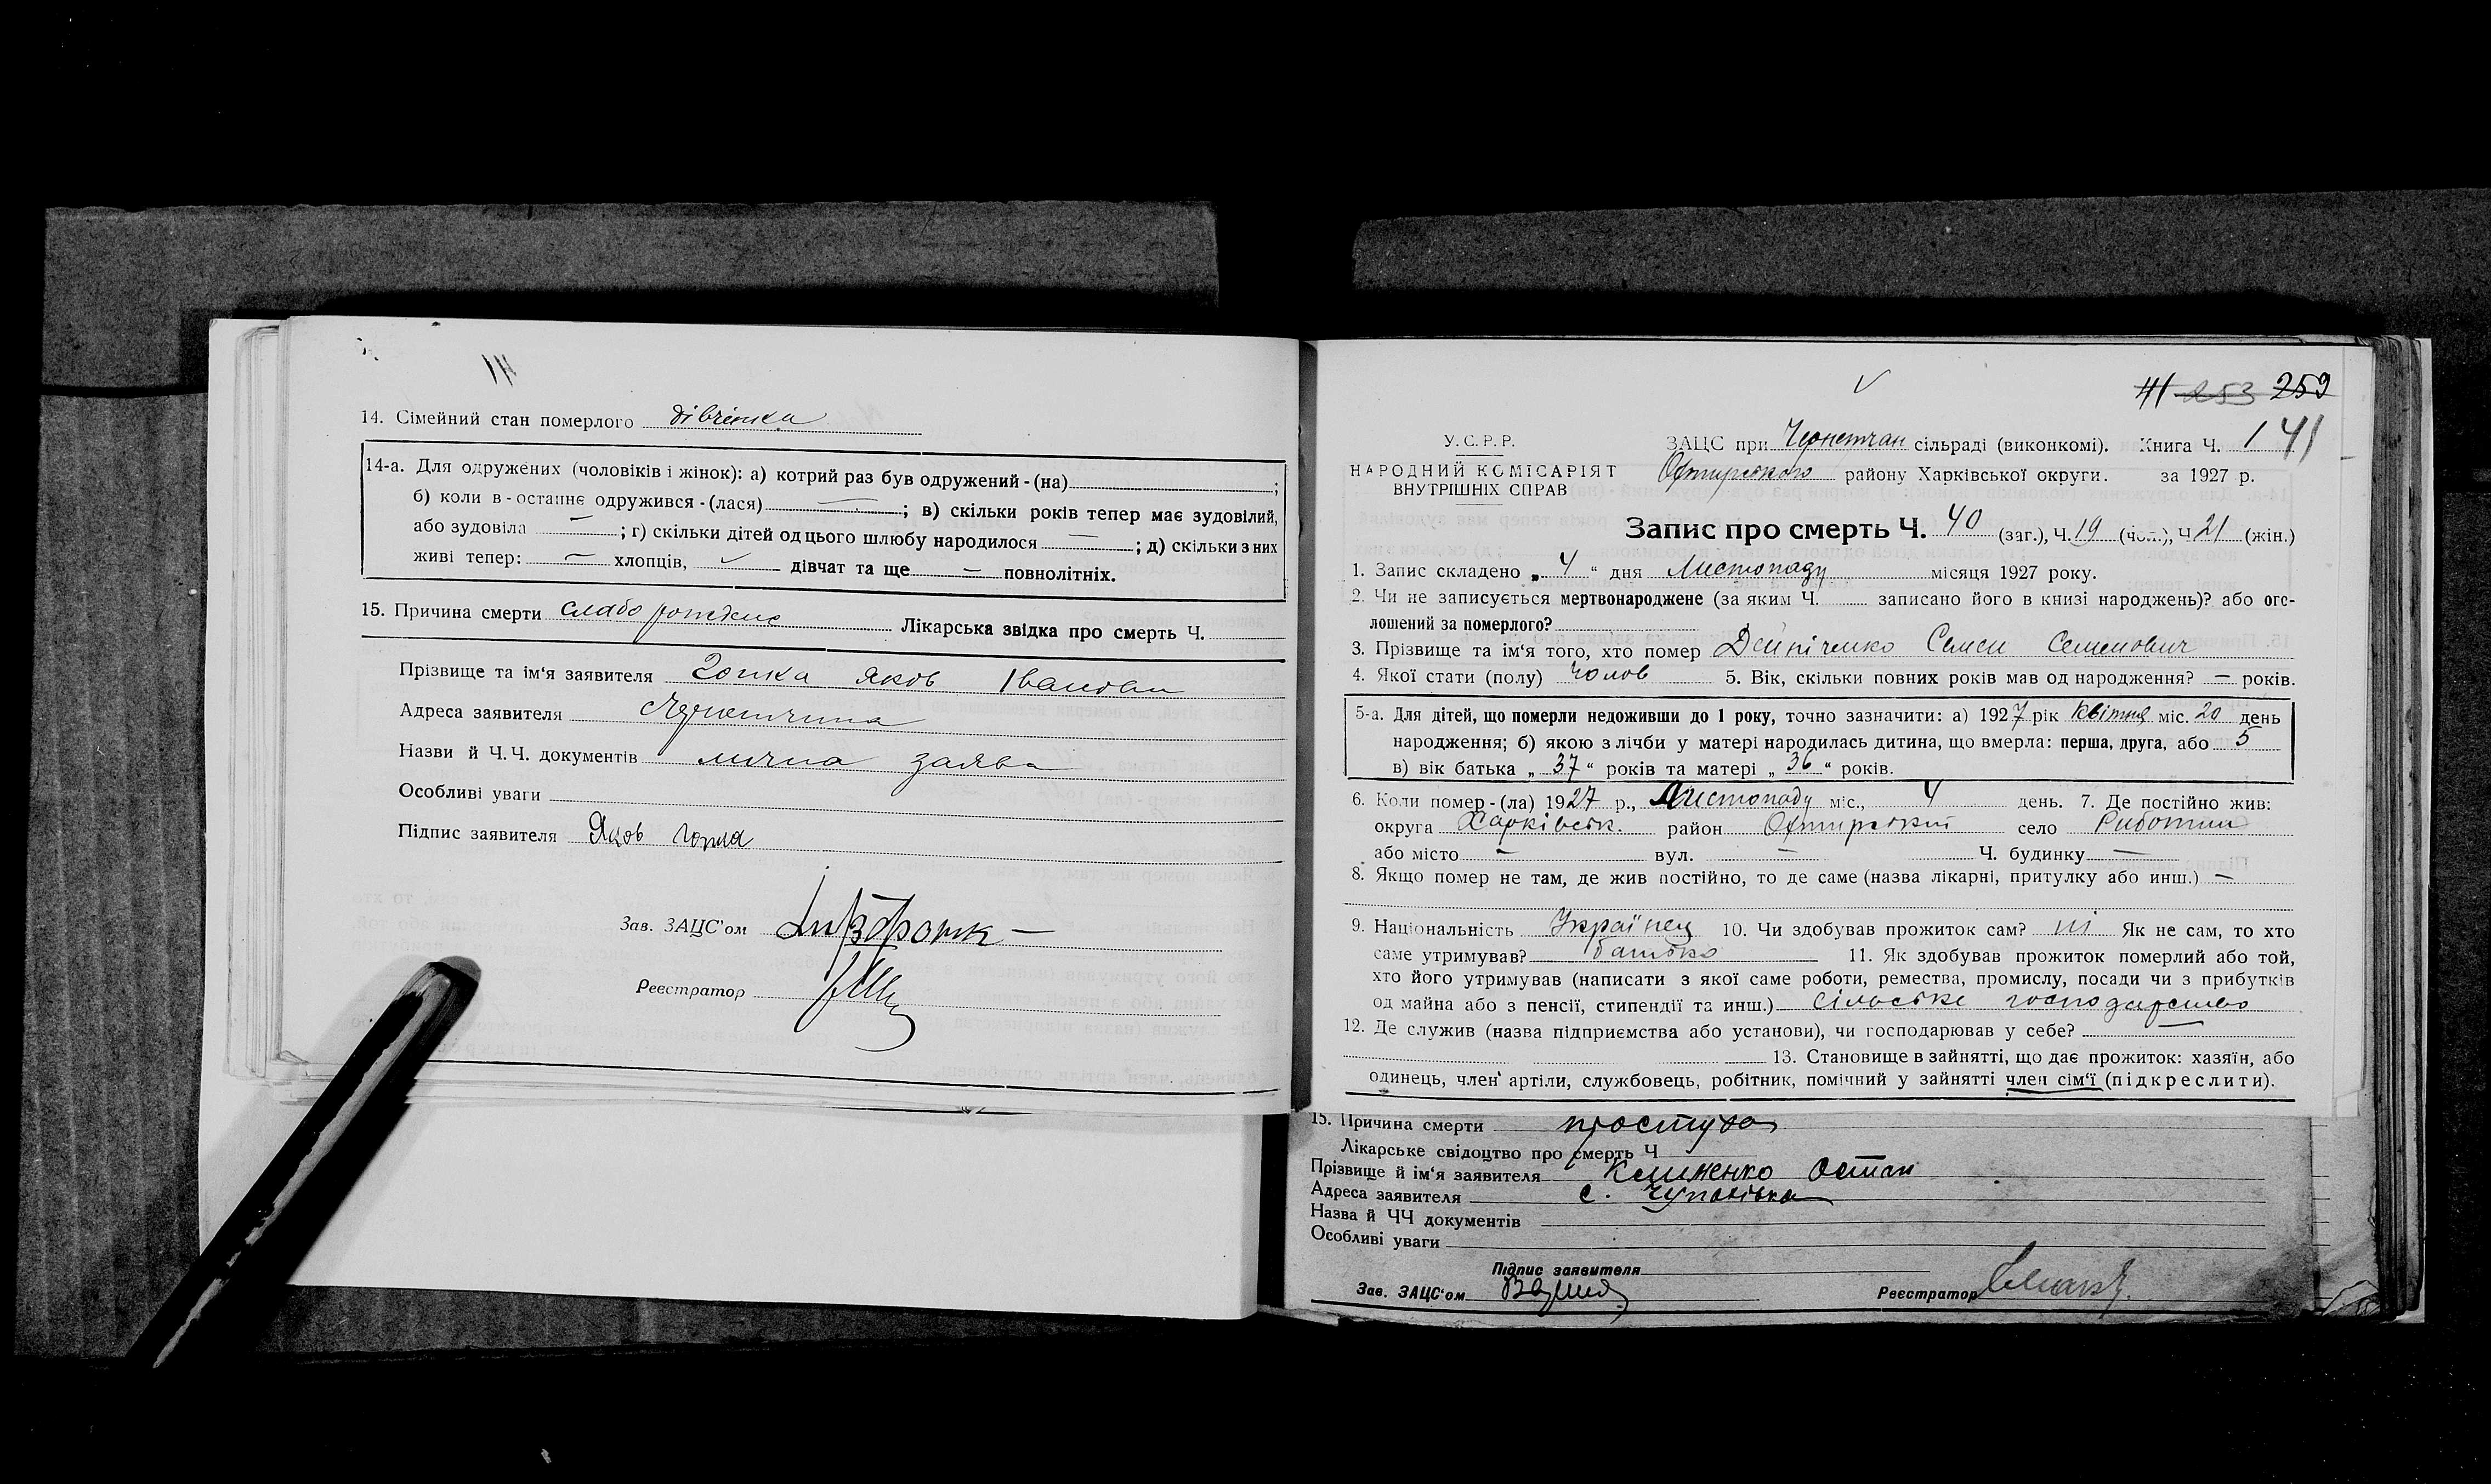 14. Сімейний стан померлого дівчинка
14-а. Для одружених (чоловіків і жінок): а) котрий раз був одружений - (на) ;
б) коли в - останнє одружився - (лася) — ; в) скільки років тепер має зудовілий,
або зудовіла — ; г) скільки дітей од цього шлюбу народилося — ; д) скільки з них
живі тепер: — хлопців, — дівчат та ще — повнолітніх.
15. Причина смерти слабо Лікарська звідка про смерть Ч.
Прізвище та ім'я заявителя Яков
Адреса заявителя
Назви й Ч.Ч. документів лична заява
Особливі уваги
Підпис заявителя
Зав. ЗАЦС'ом
Реєстратор
41 253 259
У.С.Р.Р.
НАРОДНИЙ КОМІСАРІЯТ
ВНУТРІШНІХ СПРАВ
ЗАЦС при Чернетчан сільраді (виконкомі). Книга Ч. 1 41
Охтирського району Харківської округи. за 1927 р.
Запис про смерть Ч. 40 (заг.), Ч. 19 (чол.), Ч. 21 (жін.)
1. Запис складено „ 4 “ дня Листопаду місяця 1927 року.
2. Чи не записується мертвонароджене (за яким Ч. записано його в книзі народжень)? або ого-
лошений за померлого?
3. Прізвище та ім'я того, хто помер Семен Семенович
4. Якої стати (полу) Чолов 5. Вік, скільки повних років мав од народження? — років.
5-а. Для дітей, що померли недоживши до 1 року, точно зазначити: а) 1927 рік Квітня міс. 20 день
народження; б) якою з лічби у матері народилась дитина, що вмерла: перша, друга, або 5
в) вік батька „ 37 “ років та матері „ 36 “ років.
6. Коли помер - (ла) 1927 р., Листопаду міс., 4 день. 7. Де постійно жив:
округа Харківськ. район Охтирський село
або місто — вул. — Ч. будинку —
8. Якщо помер не там, де жив постійно, то де саме (назва лікарні, притулку або инш.) —
9. Національність Українец 10. Чи здобував прожиток сам? ні Як не сам, то хто
саме утримував? батько 11. Як здобував прожиток померлий або той,
хто його утримував (написати з якої саме роботи, ремества, промислу, посади чи з прибутків
од майна або з пенсії, стипендії та инш.) сільське господарство
12. Де служив (назва підприємства або установи), чи господарював у себе? —
13. Становище в зайнятті, що дає прожиток: хазяїн, або
одинець, член артіли, службовець, робітник, помічний у зайнятті член сім'ї (підкреслити).
15. Причина смерти простуда
Лікарське свідоцтво про смерть Ч
Прізвище й ім'я заявителя Клименко Остап
Адреса заявителя с. Чупахівка
Назва й ЧЧ документів
Особливі уваги
Підпис заявителя
Зав. ЗАЦС'ом
Реєстратор